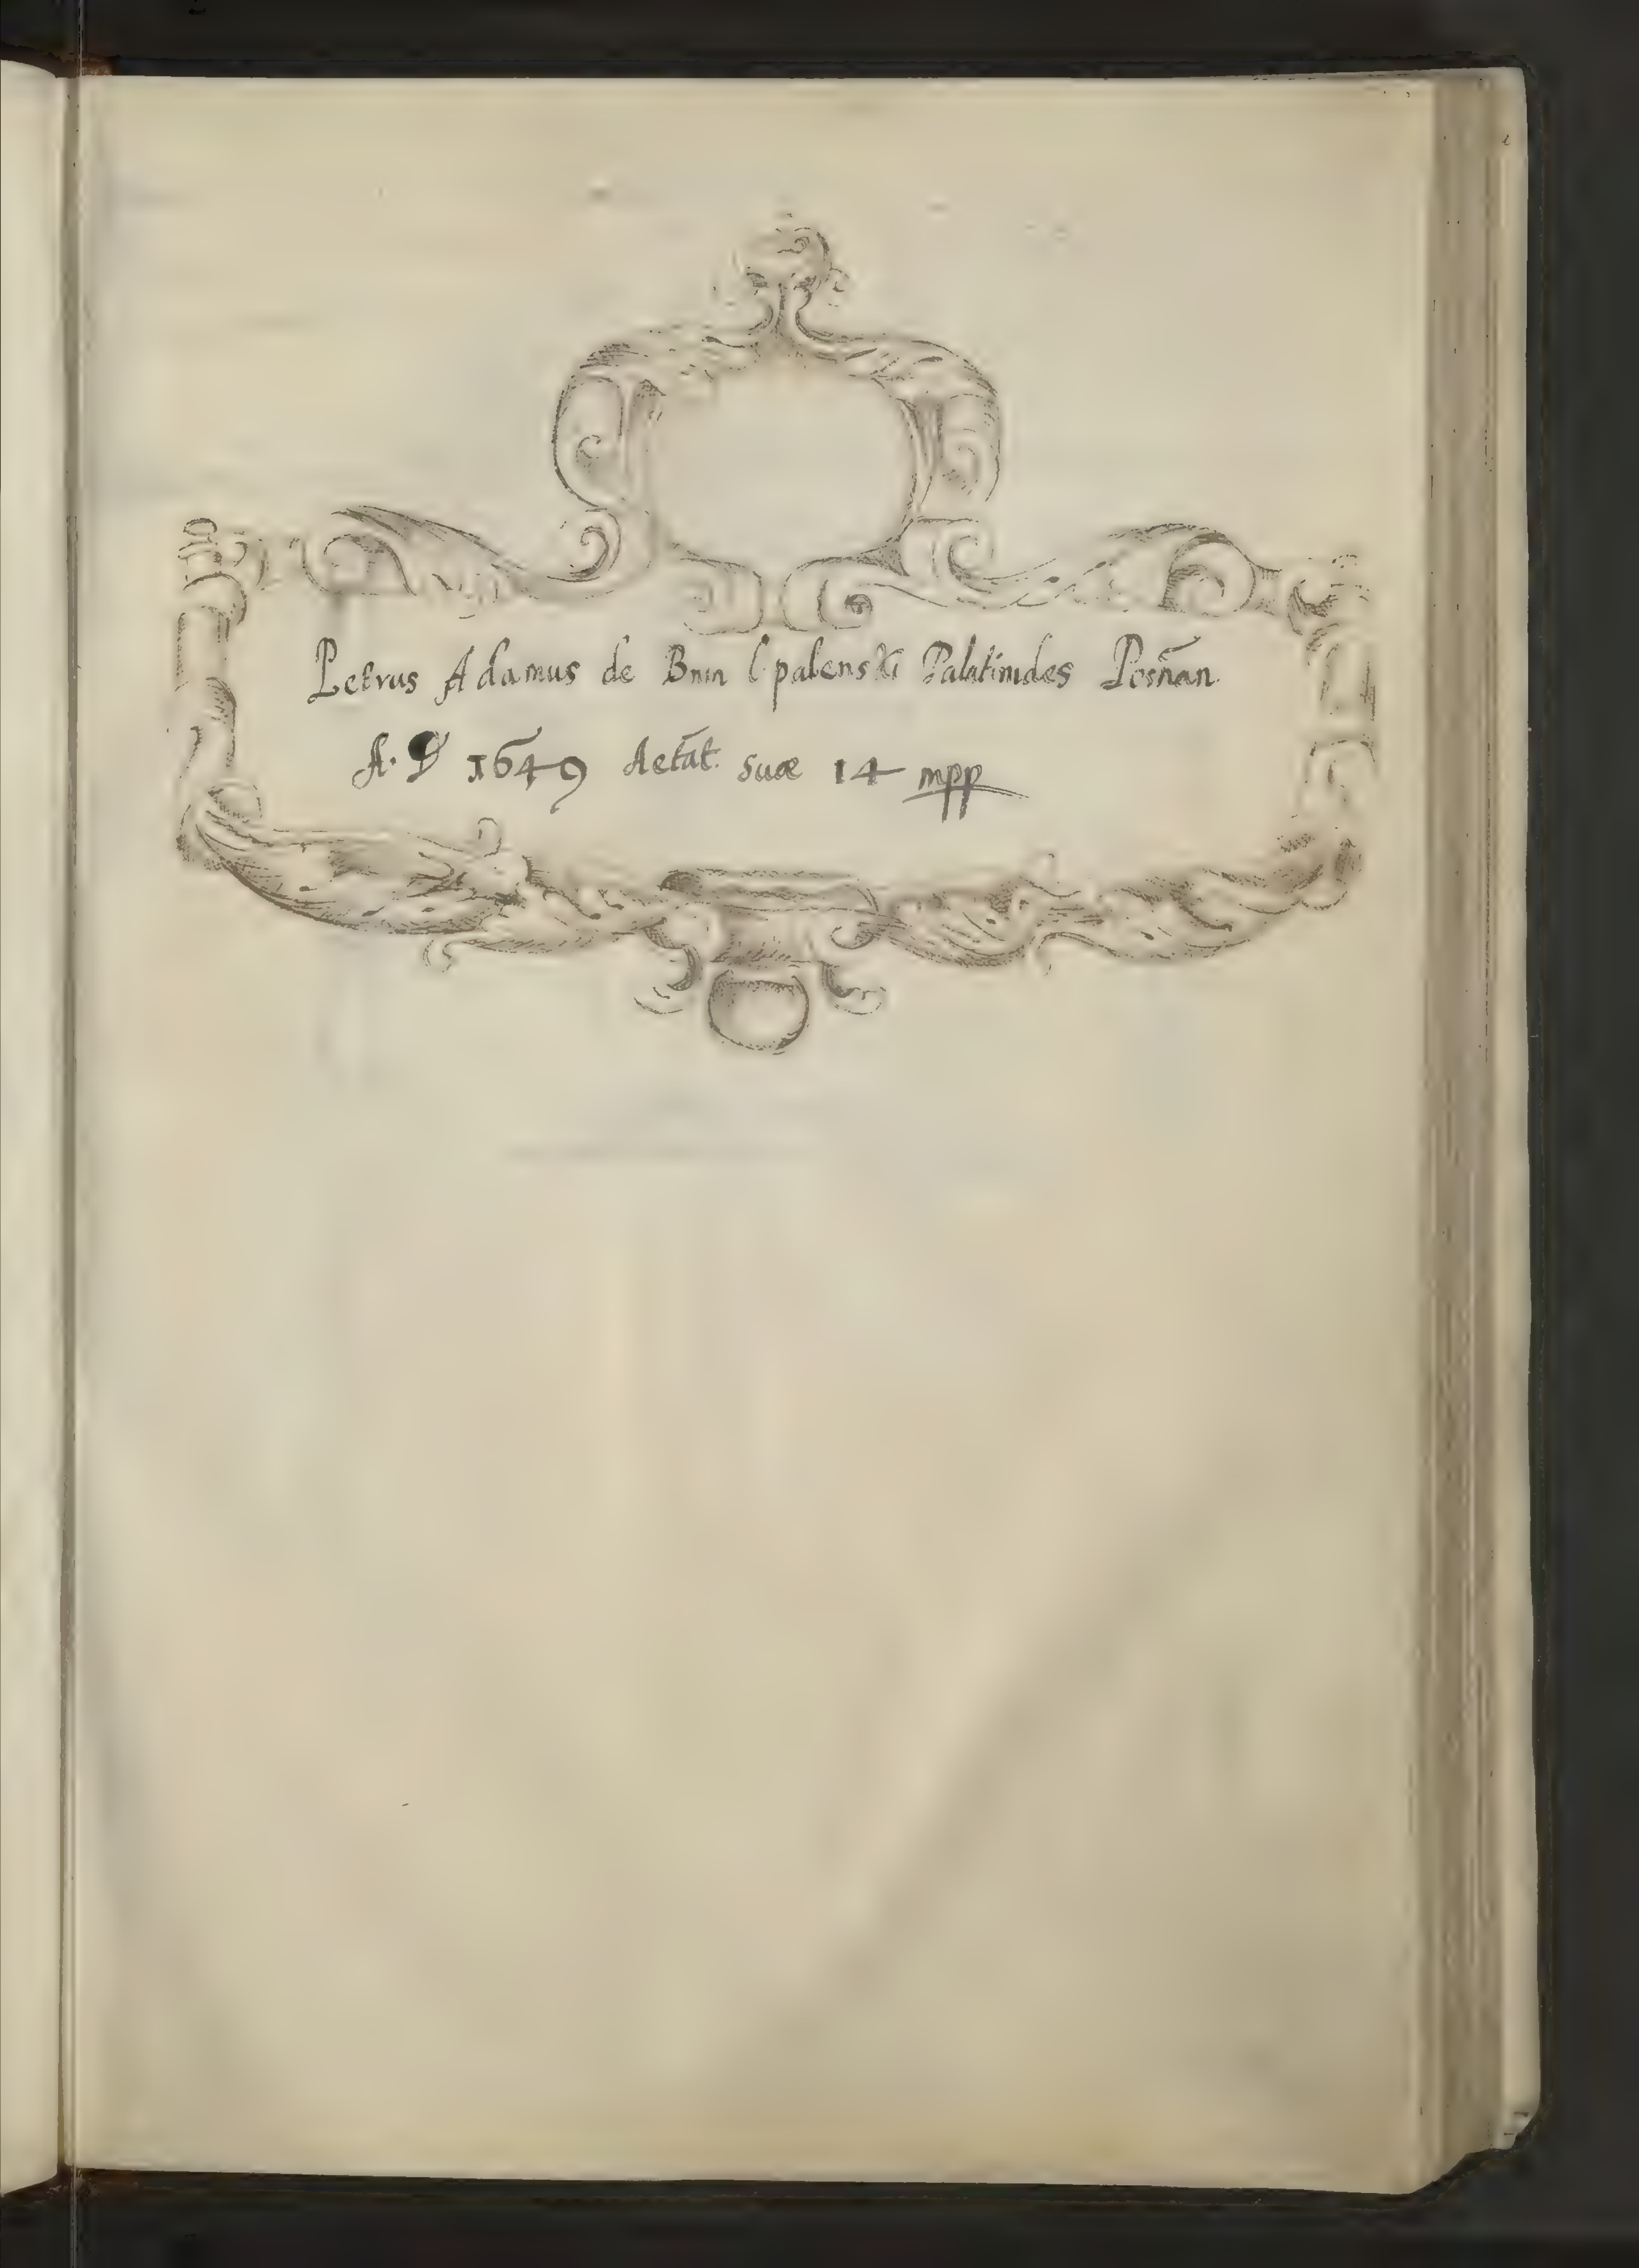 Petrus Adamus de Bnin Opalenski Palatinides Posnan.
A. D 1649 Aetat. suæ 14 mpp